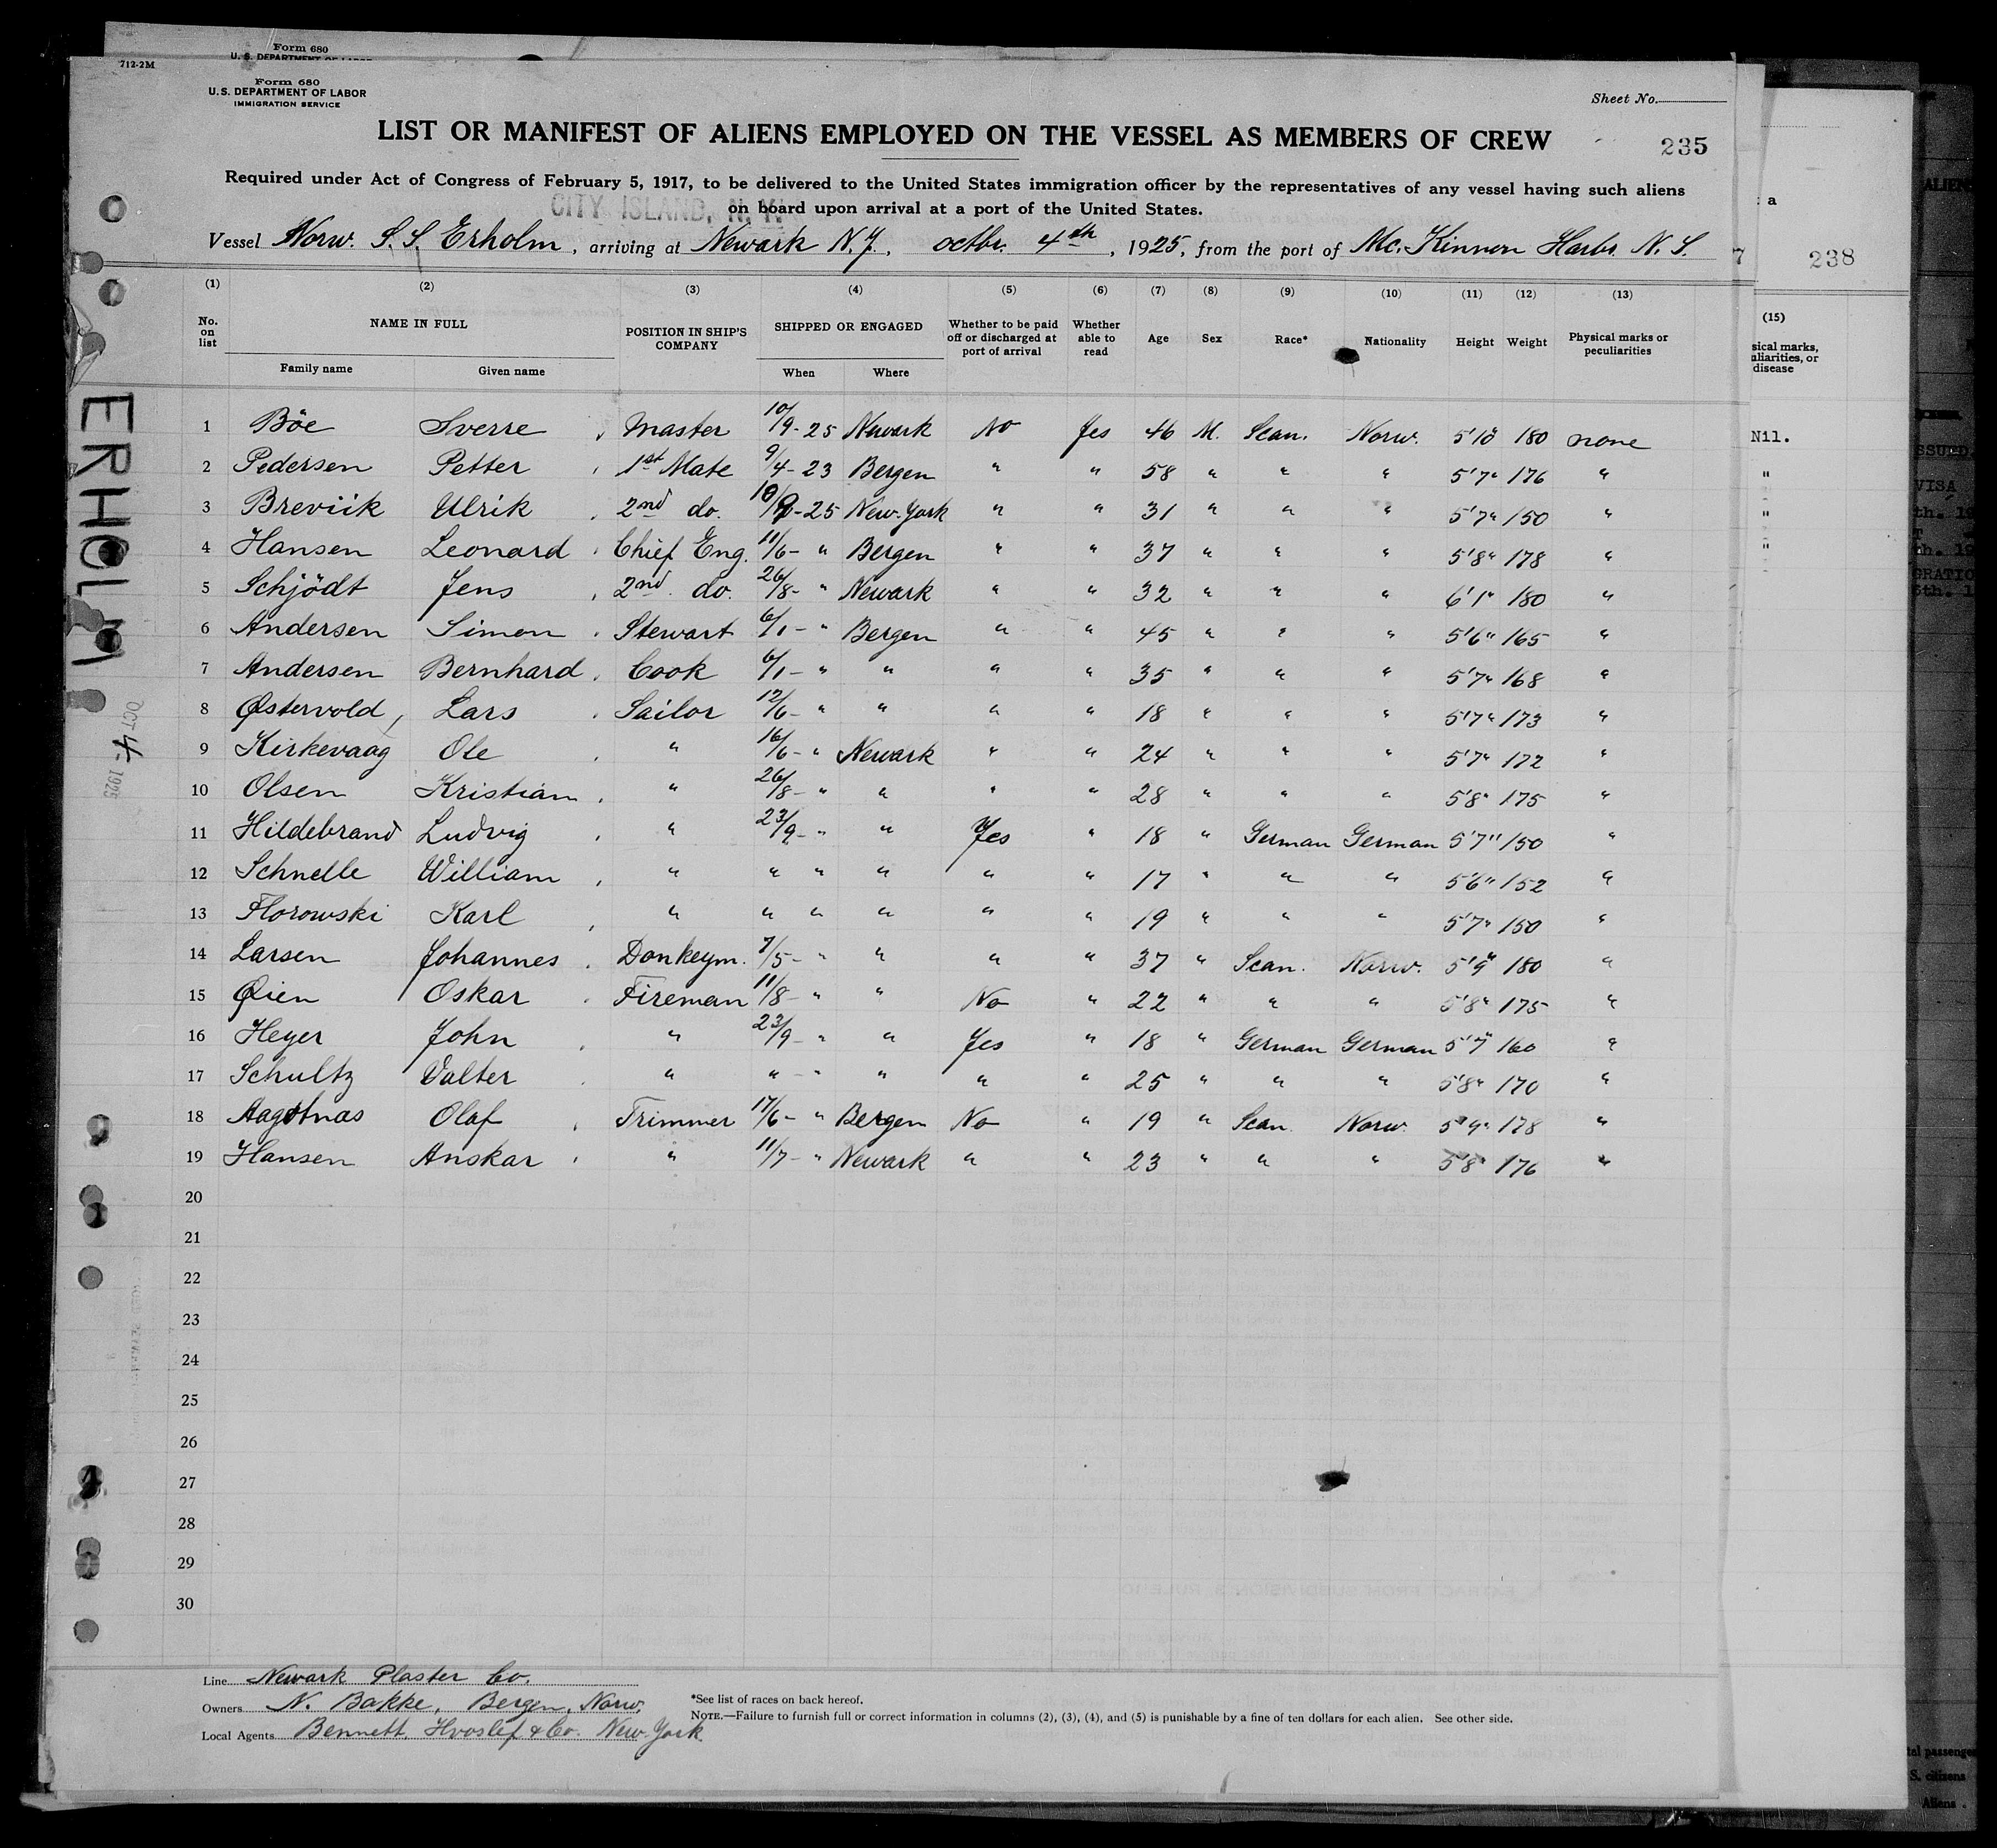 Form 680
U. S. DEPARTMENT OF LABOR
712-2M
Form 680
U.S. DEPARTMENT OF LABOR
IMMIGRATION SERVICE
Sheet No.
LIST OR MANIFEST OF ALIENS EMPLOYED ON THE VESSEL AS MEMBERS OF CREW
235
Required under Act of Congress of February 5, 1917, to be delivered to the United States immigration officer by the representatives of any vessel having such aliens
on board upon arrival at a port of the United States.
CITY ISLAND, N. Y.
Vessel Norw. S.S. Erholm, arriving at Newark N.J., octbr. 4th, 1925, from the port of Mc. Kinnon Harbr. N. S.
7 238
(1) (2) (3) (4) (5) (6) (7) (8) (9) (10) (11) (12) (13)
No. on list NAME IN FULL POSITION IN SHIP'S COMPANY SHIPPED OR ENGAGED Whether to be paid off or discharged at port of arrival Whether able to read Age Sex Race* Nationality Height Weight Physical marks or peculiarities
Family name Given name When Where
(15)
sical marks,
uliarities, or
disease
1 Böe Sverre Master 10/9-25 Newark No Yes 46 M. Scan. Norw. 5'10 180 none
2 Pedersen Petter 1st Mate 9/4-23 Bergen " " 58 " " " 5'7" 176 "
3 Breviik Ulrik 2nd do. 10/9-25 New-York " " 31 " " " 5'7" 150 "
4 Hansen Leonard Chief Eng. 11/6- " Bergen " " 37 " " " 5'8" 178 "
5 Schjödt Jens 2nd do. 26/8- " Newark " " 32 " " " 6'1" 180 "
6 Andersen Simon Stewart 6/1- " Bergen " " 45 " " " 5'6" 165 "
7 Andersen Bernhard Cook 6/1- " " " " 35 " " " 5'7" 168 "
8 Østervold, Lars Sailor 12/6- " " " " 18 " " " 5'7" 173 "
9 Kirkevaag Ole " 16/6- " Newark " " 24 " " " 5'7" 172 "
10 Olsen Kristian " 26/8- " " " " 28 " " " 5'8" 175 "
11 Hildebrand Ludvig " 23/9- " " Yes " 18 " German German 5'7" 150 "
12 Schnelle William " " " " " " 17 " " " 5'6" 152 "
13 Florowski Karl " " " " " " 19 " " " 5'7" 150 "
14 Larsen Johannes Donkeym. 7/5- " " " " 37 " Scan. Norw. 5'9" 180 "
15 Øien Oskar Fireman 11/8- " " No " 22 " " " 5'8" 175 "
16 Heyer John " 23/9- " " Yes " 18 " German German 5'7" 160 "
17 Schultz Valter " " - " " " " 25 " " " 5'8" 170 "
18 Aagotnas Olaf Trimmer 17/6- " Bergen No " 19 " Scan. Norw. 5'9" 178 "
19 Hansen Anskar " 11/7- " Newark " " 23 " " " 5'8" 176 "
20
21
22
23
24
25
26
27
28
29
30
Nil.
"
"
"
ERHOLM
OCT 4 1925
Line Newark Plaster Co.
Owners N. Bakke, Bergen, Norw.
Local Agents Bennett, Hvoslef & Co. New-York.
*See list of races on back hereof.
NOTE.—Failure to furnish full or correct information in columns (2), (3), (4), and (5) is punishable by a fine of ten dollars for each alien. See other side.